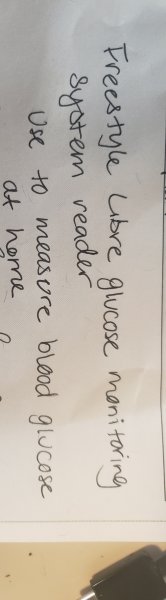 Freestyle Libre glucose monitoring
system reader
Use to measure blood glucose
at home